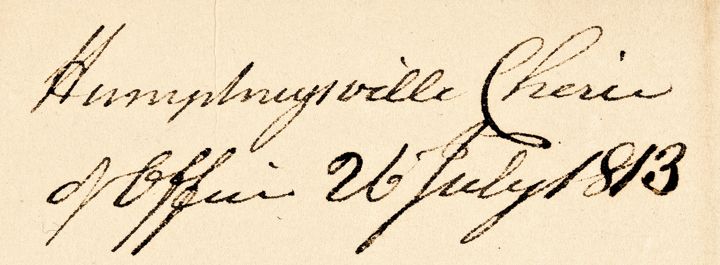 Humphreysville Cherie
of Office 26 July 1813